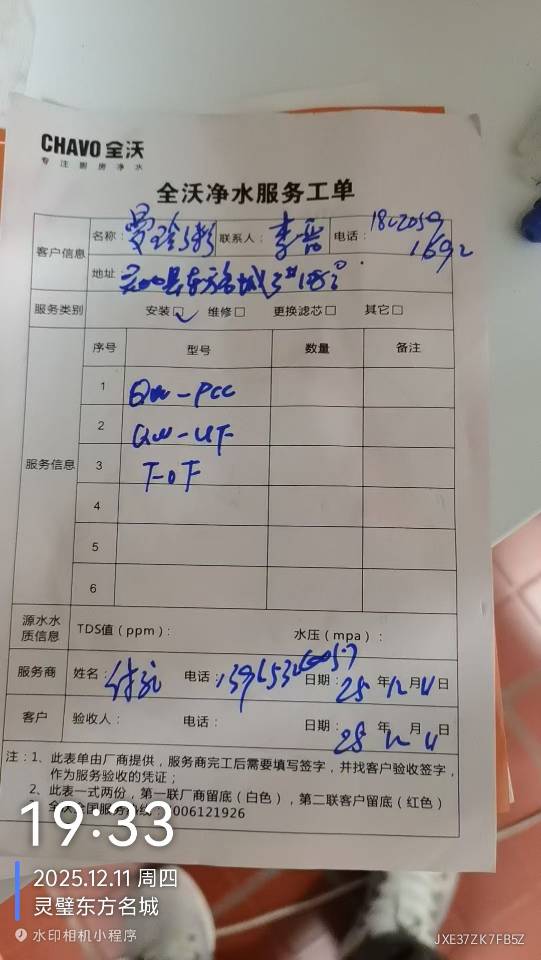 CHAVO 全沃
专 注 厨 房 净 水
全沃净水服务工单
客户信息 名称： 联系人：李 电话：1802059
1692
地址：县东方名城3#
服务类别 安装□✓ 维修□ 更换滤芯□ 其它□
序号 型号 数量 备注
服务信息
1 QW-PCC
2 QW-UF
3 T-0F
4
5
6
源水水质信息 TDS值（ppm）： 水压（mpa）：
服务商 姓名： 电话： 日期：25年12月11日
客户 验收人： 电话： 日期：25年12月11日
注：1、此表单由厂商提供，服务商完工后需要填写签字，并找客户验收签字，
作为服务验收的凭证；
2、此表一式两份，第一联厂商留底（白色），第二联客户留底（红色）
全国服务 006121926
19:33
2025.12.11 周四
灵璧东方名城
水印相机小程序
JXE37ZK7FB5Z